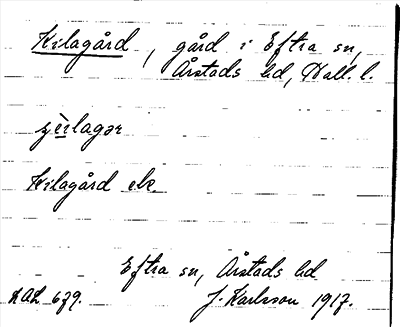 Kilagård, gård i Eftra sn,
Årstads hd, Hall. l.
çèᵢlagər
Kilagård ek.
Eftra sn, Årstads hd
DAL 679. J. Karlsson 1917.